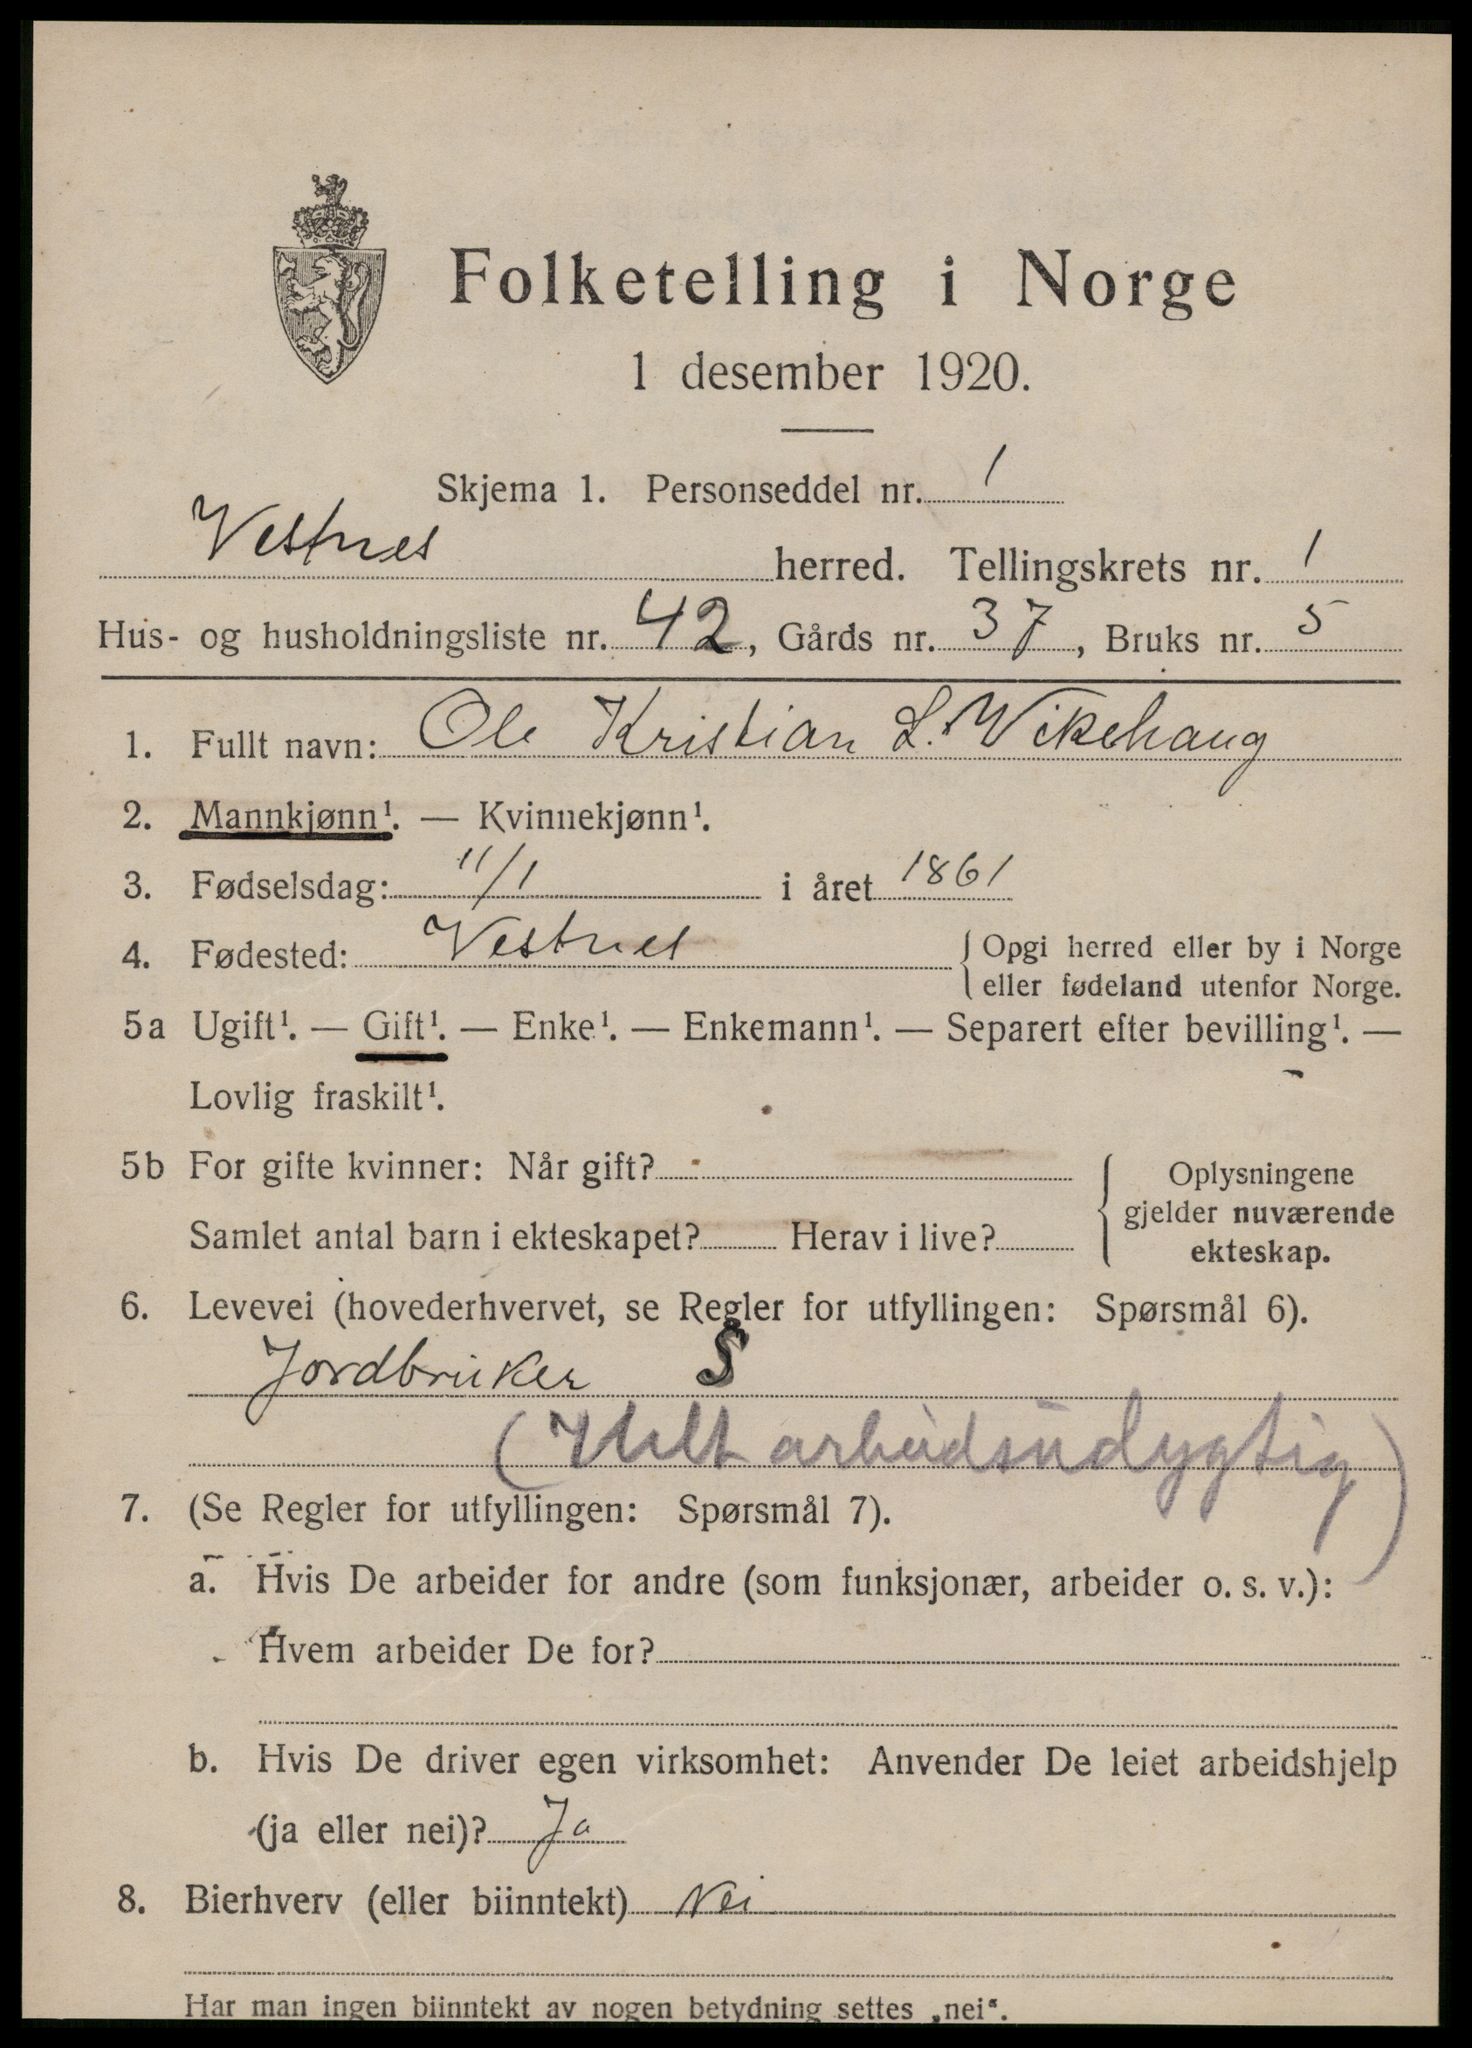 Folketelling i Norge
1 desember 1920.
Skjema 1. Personseddel nr. 1
Vestnes herred. Tellingskrets nr. 1
Hus- og husholdningsliste nr. 42, Gårds nr. 37, Bruks nr. 5
1. Fullt navn: Ole Kristian L. Vikehaug
2. Mannkjønn¹. — Kvinnekjønn¹.
3. Fødselsdag: 11/1 i året 1861
4. Fødested: Vestnes { Opgi herred eller by i Norge
eller fødeland utenfor Norge.
5a Ugift¹. — Gift¹. — Enke¹. — Enkemann¹. — Separert efter bevilling¹. —
Lovlig fraskilt¹.
5b For gifte kvinner: Når gift?
Samlet antal barn i ekteskapet? Herav i live?
{ Oplysningene
gjelder nuværende
ekteskap.
6. Levevei (hovederhvervet, se Regler for utfyllingen: Spørsmål 6).
Jordbruker S
(Helt arbeidsudygtig)
7. (Se Regler for utfyllingen: Spørsmål 7).
a. Hvis De arbeider for andre (som funksjonær, arbeider o. s. v.):
Hvem arbeider De for?
b. Hvis De driver egen virksomhet: Anvender De leiet arbeidshjelp
(ja eller nei)? Ja
8. Bierhverv (eller biinntekt) Nei
Har man ingen biinntekt av nogen betydning settes „nei“.